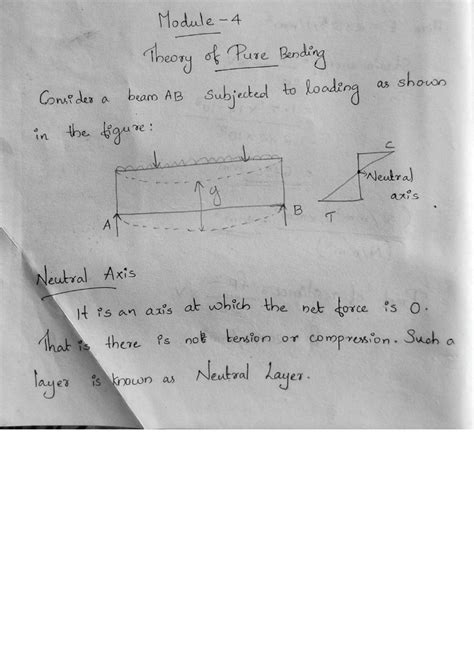 Module - 4
Theory of Pure Bending
Consider a beam AB subjected to loading as shown
in the figure:
C
Neutral
axis
y
A
B
T
Neutral Axis
It is an axis at which the net force is 0.
That is there is not tension or compression. Such a
layer is known as Neutral Layer.